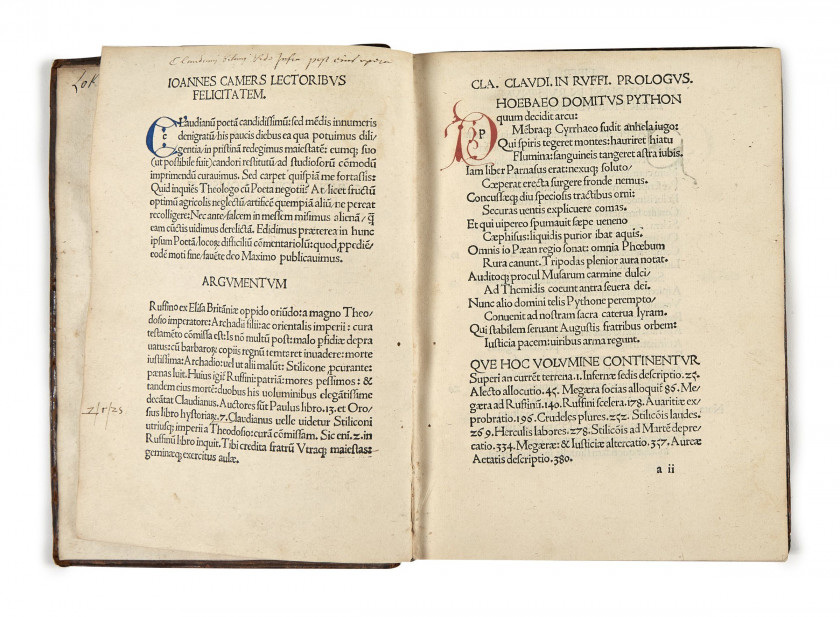 Lok
IOANNES CAMERS LECTORIBVS
FELICITATEM.
Claudianū poetā candidissimū: sed mēdis innumeris
denigratū: his paucis diebus ea qua potuimus dili⸗
gentia, in pristinā redegimus maiestatē: eumq; suo
(ut possibile fuit) candori restitutū ad studiosorū cōmodū
imprimendū curauimus. Sed carpet quispiā me fortassis:
Quid inquiēs Theologo cū Poeta negotii? At licet fructū
optimū agricolis neglectū: artificē quempiā aliū, ne pereat
recolligere: Nec ante, falcem in messem misimus alienā, q̄
eam cūctis uidimus derelictā. Edidimus præterea in hunc
ipsum Poetā, locorū difficiliū cōmentariolū: quod, ppediē,
eodē moti fine, fauēte deo Maximo publicauimus.
ARGVMENTVM
Ruffino ex Elisa Britāniæ oppido oriūdo: a magno Theo⸗
dosio imperatore: Archadii filii: ac orientalis imperii: cura
testamēto cōmissa est: Is nō multū post: malo pfidiæ depra
uatus: cū barbarorū copiis regnū temtaret inuadere: morte
iustissima: Archadio: uel ut alii malūt: Stilicone, pcurante:
pœnas luit. Huius igit̄ Ruffini: patriā: mores pessimos: &
tandem eius mortē: duobus his uoluminibus elegātissime
decātat Claudianus. Auctores sūt Paulus libro. 13. et Oro⸗
sius libro hystoriarū. 7. Claudianus uelle uidetur Stiliconi
utriusq; imperii a Theodosio: curā cōmissam. Sic eni. 2. in
Ruffinū libro inquit. Tibi credita fratrū Vtraq; maiestas:
geminæq; exercitus aulæ.
CLA. CLAVDI. IN RVFFI. PROLOGVS.
PHOEBAEO DOMITVS PYTHON
quum decidit arcu:
Mēbraq; Cyrrhaeo fudit anhela iugo:
Qui spiris tegeret montes: hauriret hiatu
Flumina: sanguineis tangeret astra iubis.
Iam liber Parnasus erat: nexuq; soluto
Cœperat erecta surgere fronde nemus.
Concussæq; diu speciosis tractibus orni:
Securas uentis explicuere comas.
Et qui uipereo spumauit sæpe ueneno
Cæphisus: liquidis purior ibat aquis.
Omnis io Pæan regio sonat: omnia Phœbum
Rura canunt. Tripodas plenior aura rotat.
Auditoq; procul Musarum carmine dulci⸗
Ad Themidis coeunt antra seuera dei.
Nunc alio domini telis Pythone perempto,
Conuenit ad nostram sacra caterua lyram.
Qui stabilem seruant Augustis fratribus orbem:
Iusticia pacem: uiribus arma regunt.
QVE HOC VOLVMINE CONTINENTVR
Superi an curēt terrena. 1. Infernæ sedis descriptio. 25.
Alecto allocutio. 45. Megæra socias alloquit̄ 86. Me⸗
gæra ad Ruffinū. 140. Ruffini scelera. 178. Auaritiæ ex⸗
probratio. 196. Crudeles plures. 252. Stilicōis laudes.
269. Herculis labores. 278. Stilicōis ad Martē depre⸗
catio. 334. Megæræ: & Iusticiæ altercatio. 357. Aureæ
Aetatis descriptio. 380.
a ii